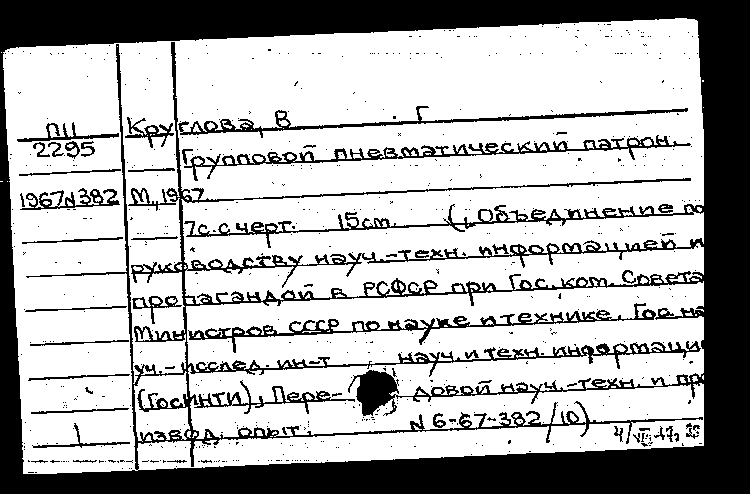 П11 Круглова, В. Г
2295
Групповой пневматический патрон.
1967 N 382 М, 1967
7с. с черт. 15см. („Объединение по
руководству науч.-техн. информацией и
пропагандой в РСФСР при Гос. ком. Совета
Министров СССР по науке и технике. Гос на
уч.-исслед. ин-т науч. и техн. информации
(ГосИНТИ), Пере- довой науч.-техн. и про
1 извод. опыт. N 6-67-382/10).